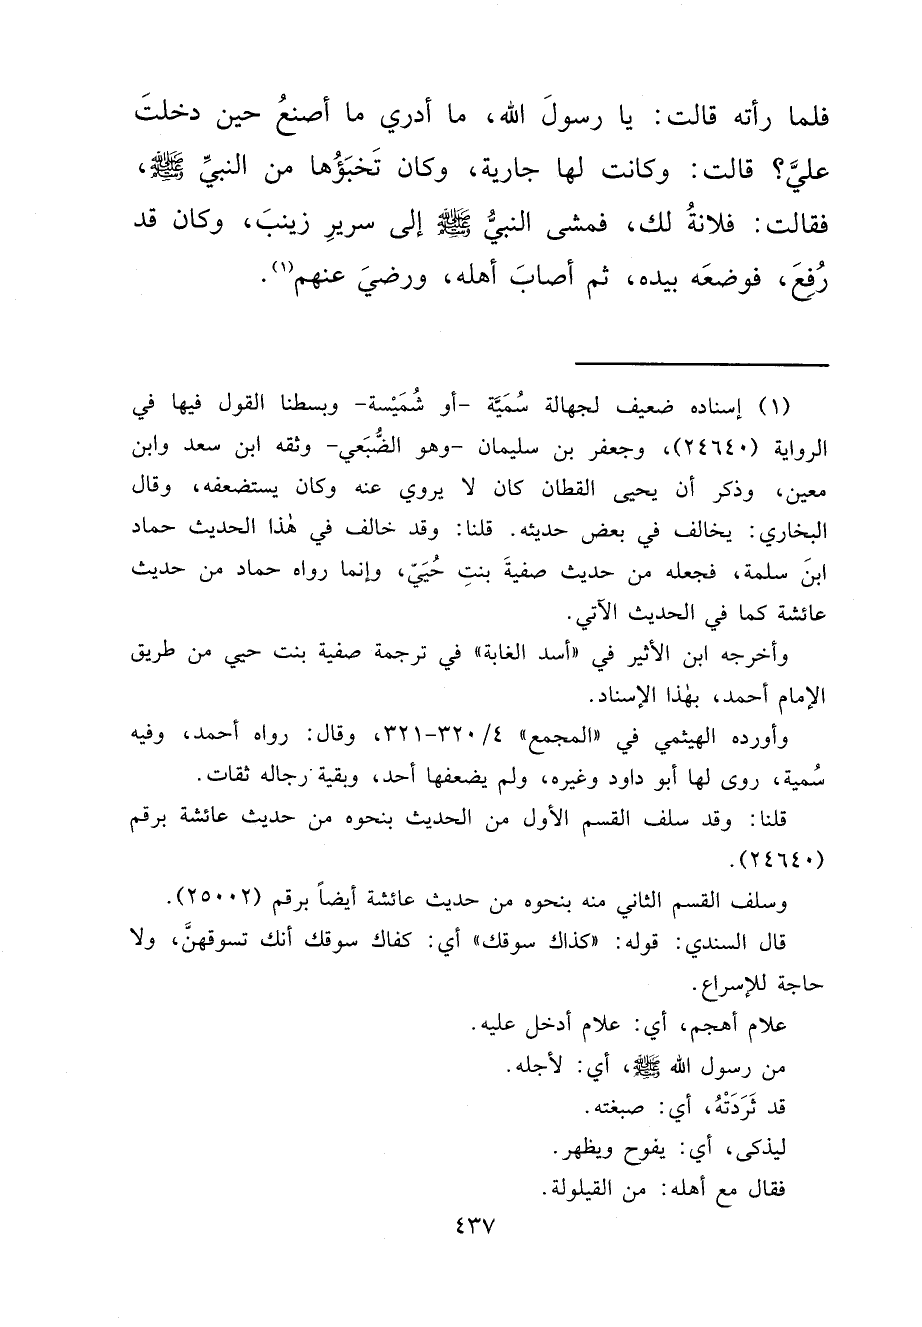 فلما رأته قالت: يا رسولَ الله، ما أدري ما أصنعُ حين دخلتَ
عليَّ؟ قالت: وكانت لها جارية، وكان تَخبَؤُها من النبيِّ ﷺ،
فقالت: فلانةُ لك، فمشى النبيُّ ﷺ إلى سريرِ زينبَ، وكان قد
رُفِعَ، فوضعَه بيده، ثم أصابَ أهله، ورضيَ عنهم(١).
(١) إسناده ضعيف لجهالة سُمَيَّة -أو شُمَيْسة- وبسطنا القول فيها في
الرواية (٢٤٦٤٠)، وجعفر بن سليمان -وهو الضُّبَعي- وثقه ابن سعد وابن
معين، وذكر أن يحيى القطان كان لا يروي عنه وكان يستضعفه، وقال
البخاري: يخالف في بعض حديثه. قلنا: وقد خالف في هٰذا الحديث حماد
ابنَ سلمة، فجعله من حديث صفيةَ بنتِ حُيَيّ، وإنما رواه حماد من حديث
عائشة كما في الحديث الآتي.
وأخرجه ابن الأثير في «أسد الغابة» في ترجمة صفية بنت حيي من طريق
الإمام أحمد، بهٰذا الإسناد.
وأورده الهيثمي في «المجمع» ٤/ ٣٢٠-٣٢١، وقال: رواه أحمد، وفيه
سُمية، روى لها أبو داود وغيره، ولم يضعفها أحد، وبقية رجاله ثقات.
قلنا: وقد سلف القسم الأول من الحديث بنحوه من حديث عائشة برقم
(٢٤٦٤٠).
وسلف القسم الثاني منه بنحوه من حديث عائشة أيضاً برقم (٢٥٠٠٢).
قال السندي: قوله: «كذاك سوقك» أي: كفاك سوقك أنك تسوقهنَّ، ولا
حاجة للإسراع.
علام أهجم، أي: علام أدخل عليه.
من رسول الله ﷺ، أي: لأجله.
قد ثَرَدَتْهُ، أي: صبغته.
ليذكى، أي: يفوح ويظهر.
فقال مع أهله: من القيلولة.
٤٣٧